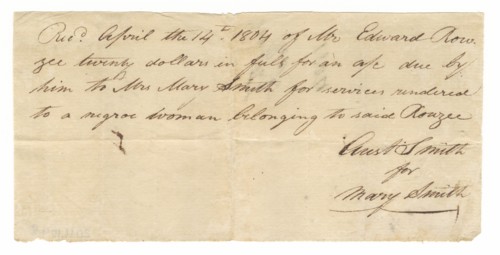 Recd. April the 14th 1804 of Mr Edward Row-
zee twenty dollars in full for an a/c due by
him to Mrs Mary Smith for services rendered
to a negroe woman belonging to said Rowzee
Aust Smith
for
Mary Smith